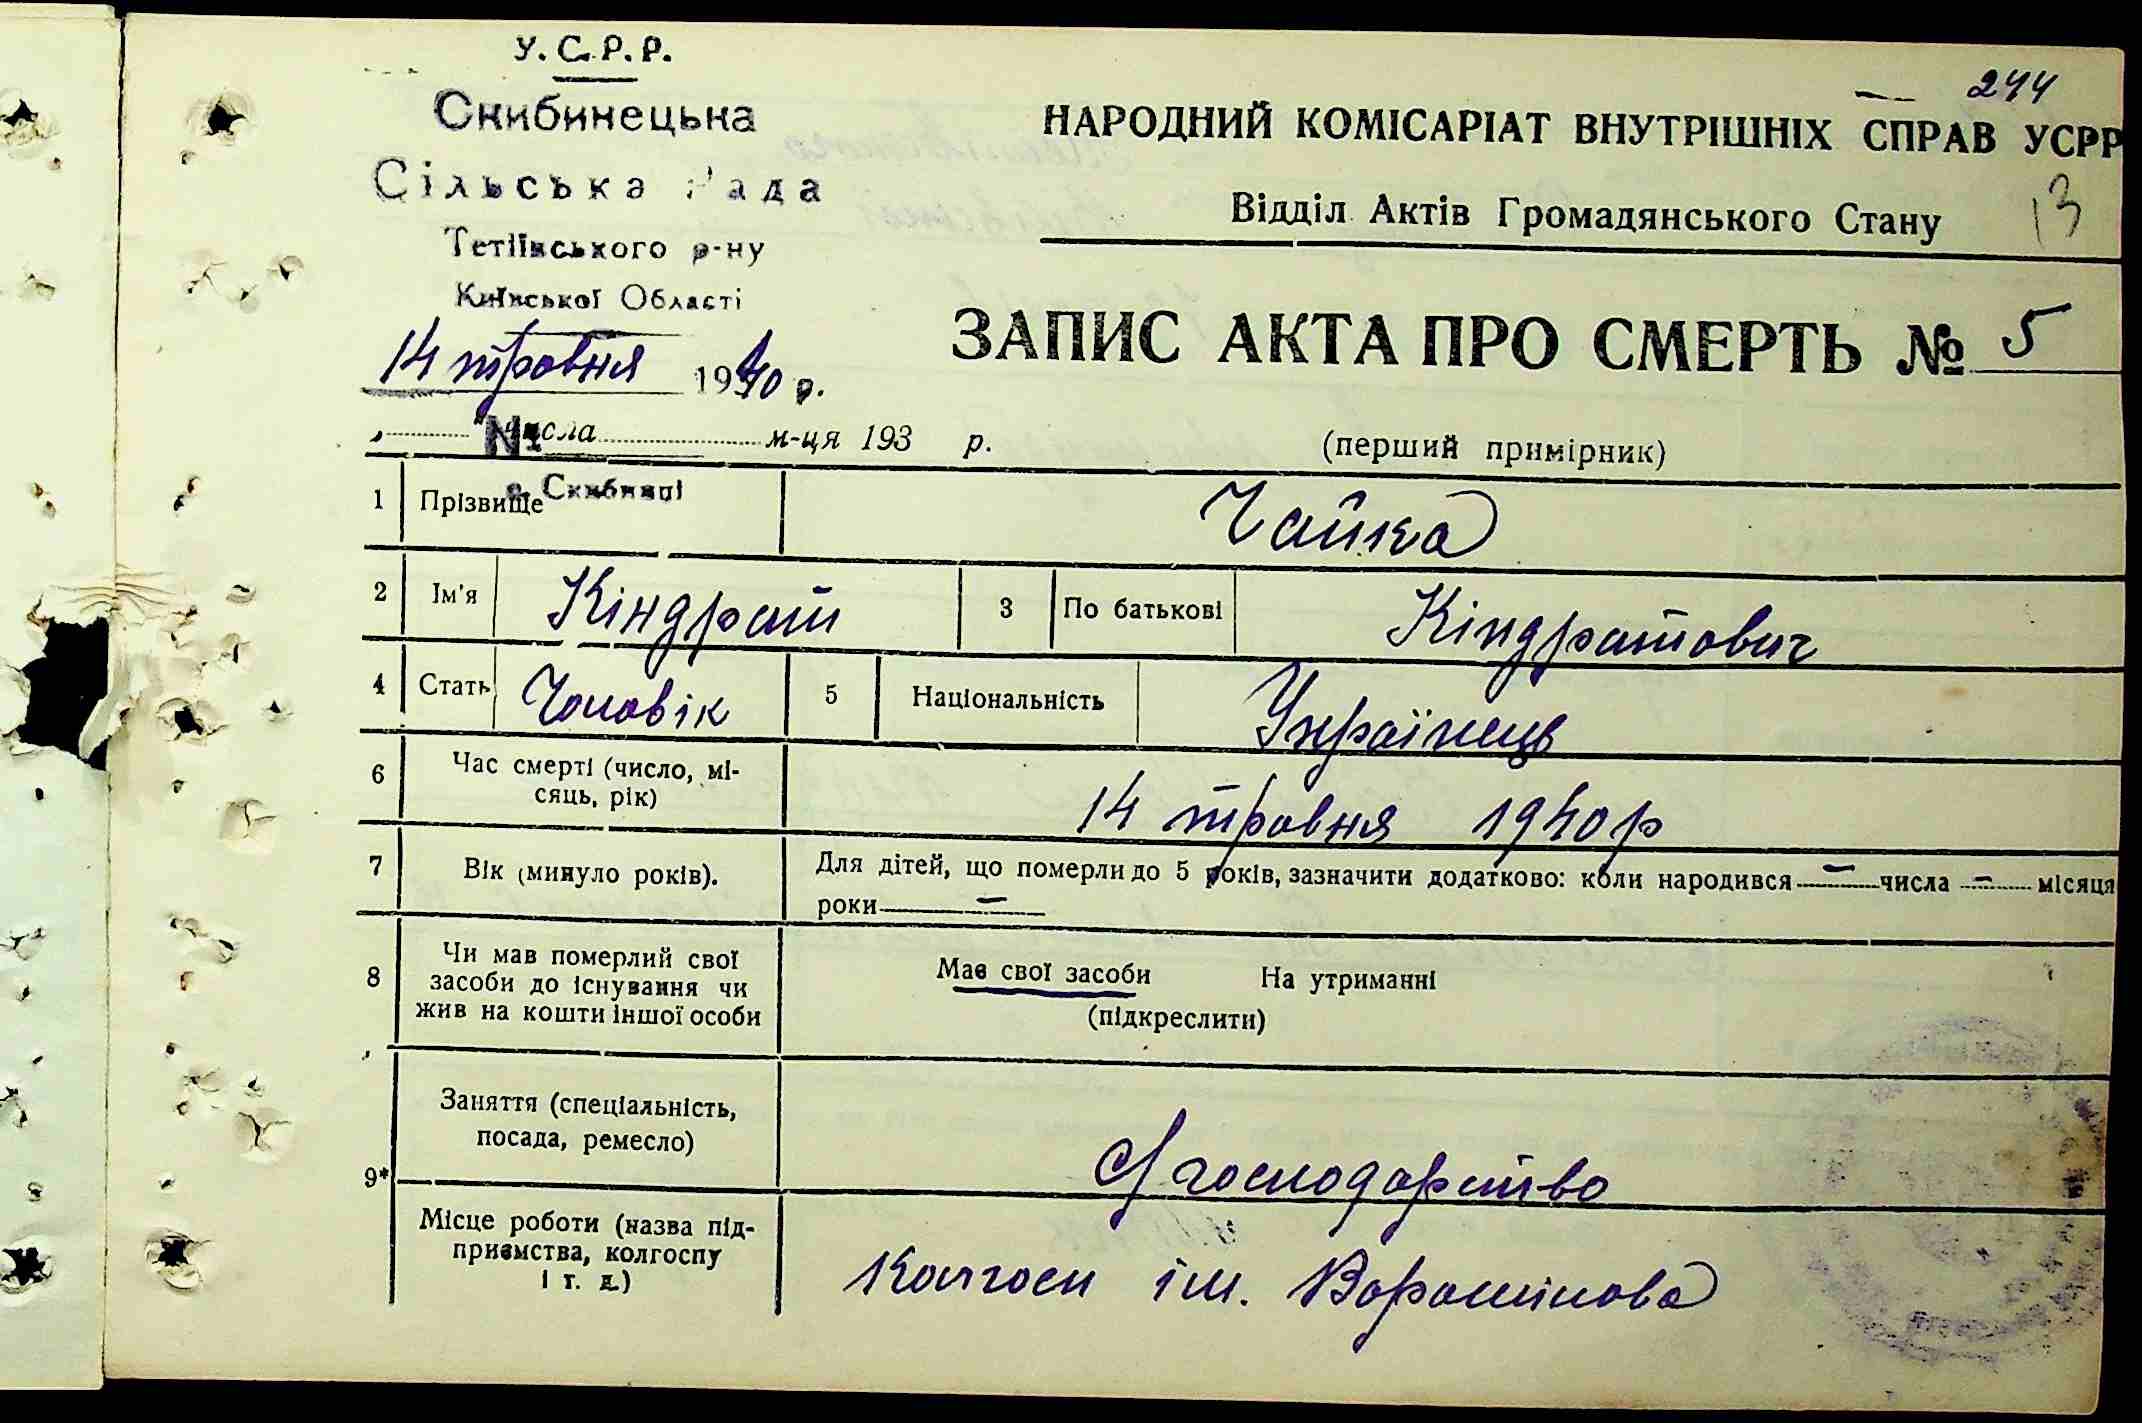 У.С.Р.Р.
Скибинецька
Сільська Рада
Тетіївського р-ну
Київської Області
14 травня 1940 р.
№
с. Скибинці
244
НАРОДНИЙ КОМІСАРІАТ ВНУТРІШНІХ СПРАВ УСРР
Відділ Актів Громадянського Стану
13
ЗАПИС АКТА ПРО СМЕРТЬ № 5
числа м-ця 193 р.
(перший примірник)
1 Прізвище Чайка
2 Ім'я Кіндрат 3 По батькові Кіндратович
4 Стать Чоловік 5 Національність Українець
6 Час смерті (число, мі-
сяць, рік) 14 травня 1940р
7 Вік (минуло років). Для дітей, що померли до 5 років, зазначити додатково: коли народився — числа — місяця
роки —
8 Чи мав померлий свої
засоби до існування чи
жив на кошти іншої особи
Має свої засоби На утриманні
(підкреслити)
9* Заняття (спеціальність,
посада, ремесло) С/господарство
Місце роботи (назва під-
приємства, колгоспу
і т. д.) Колгосп ім. Ворошілова